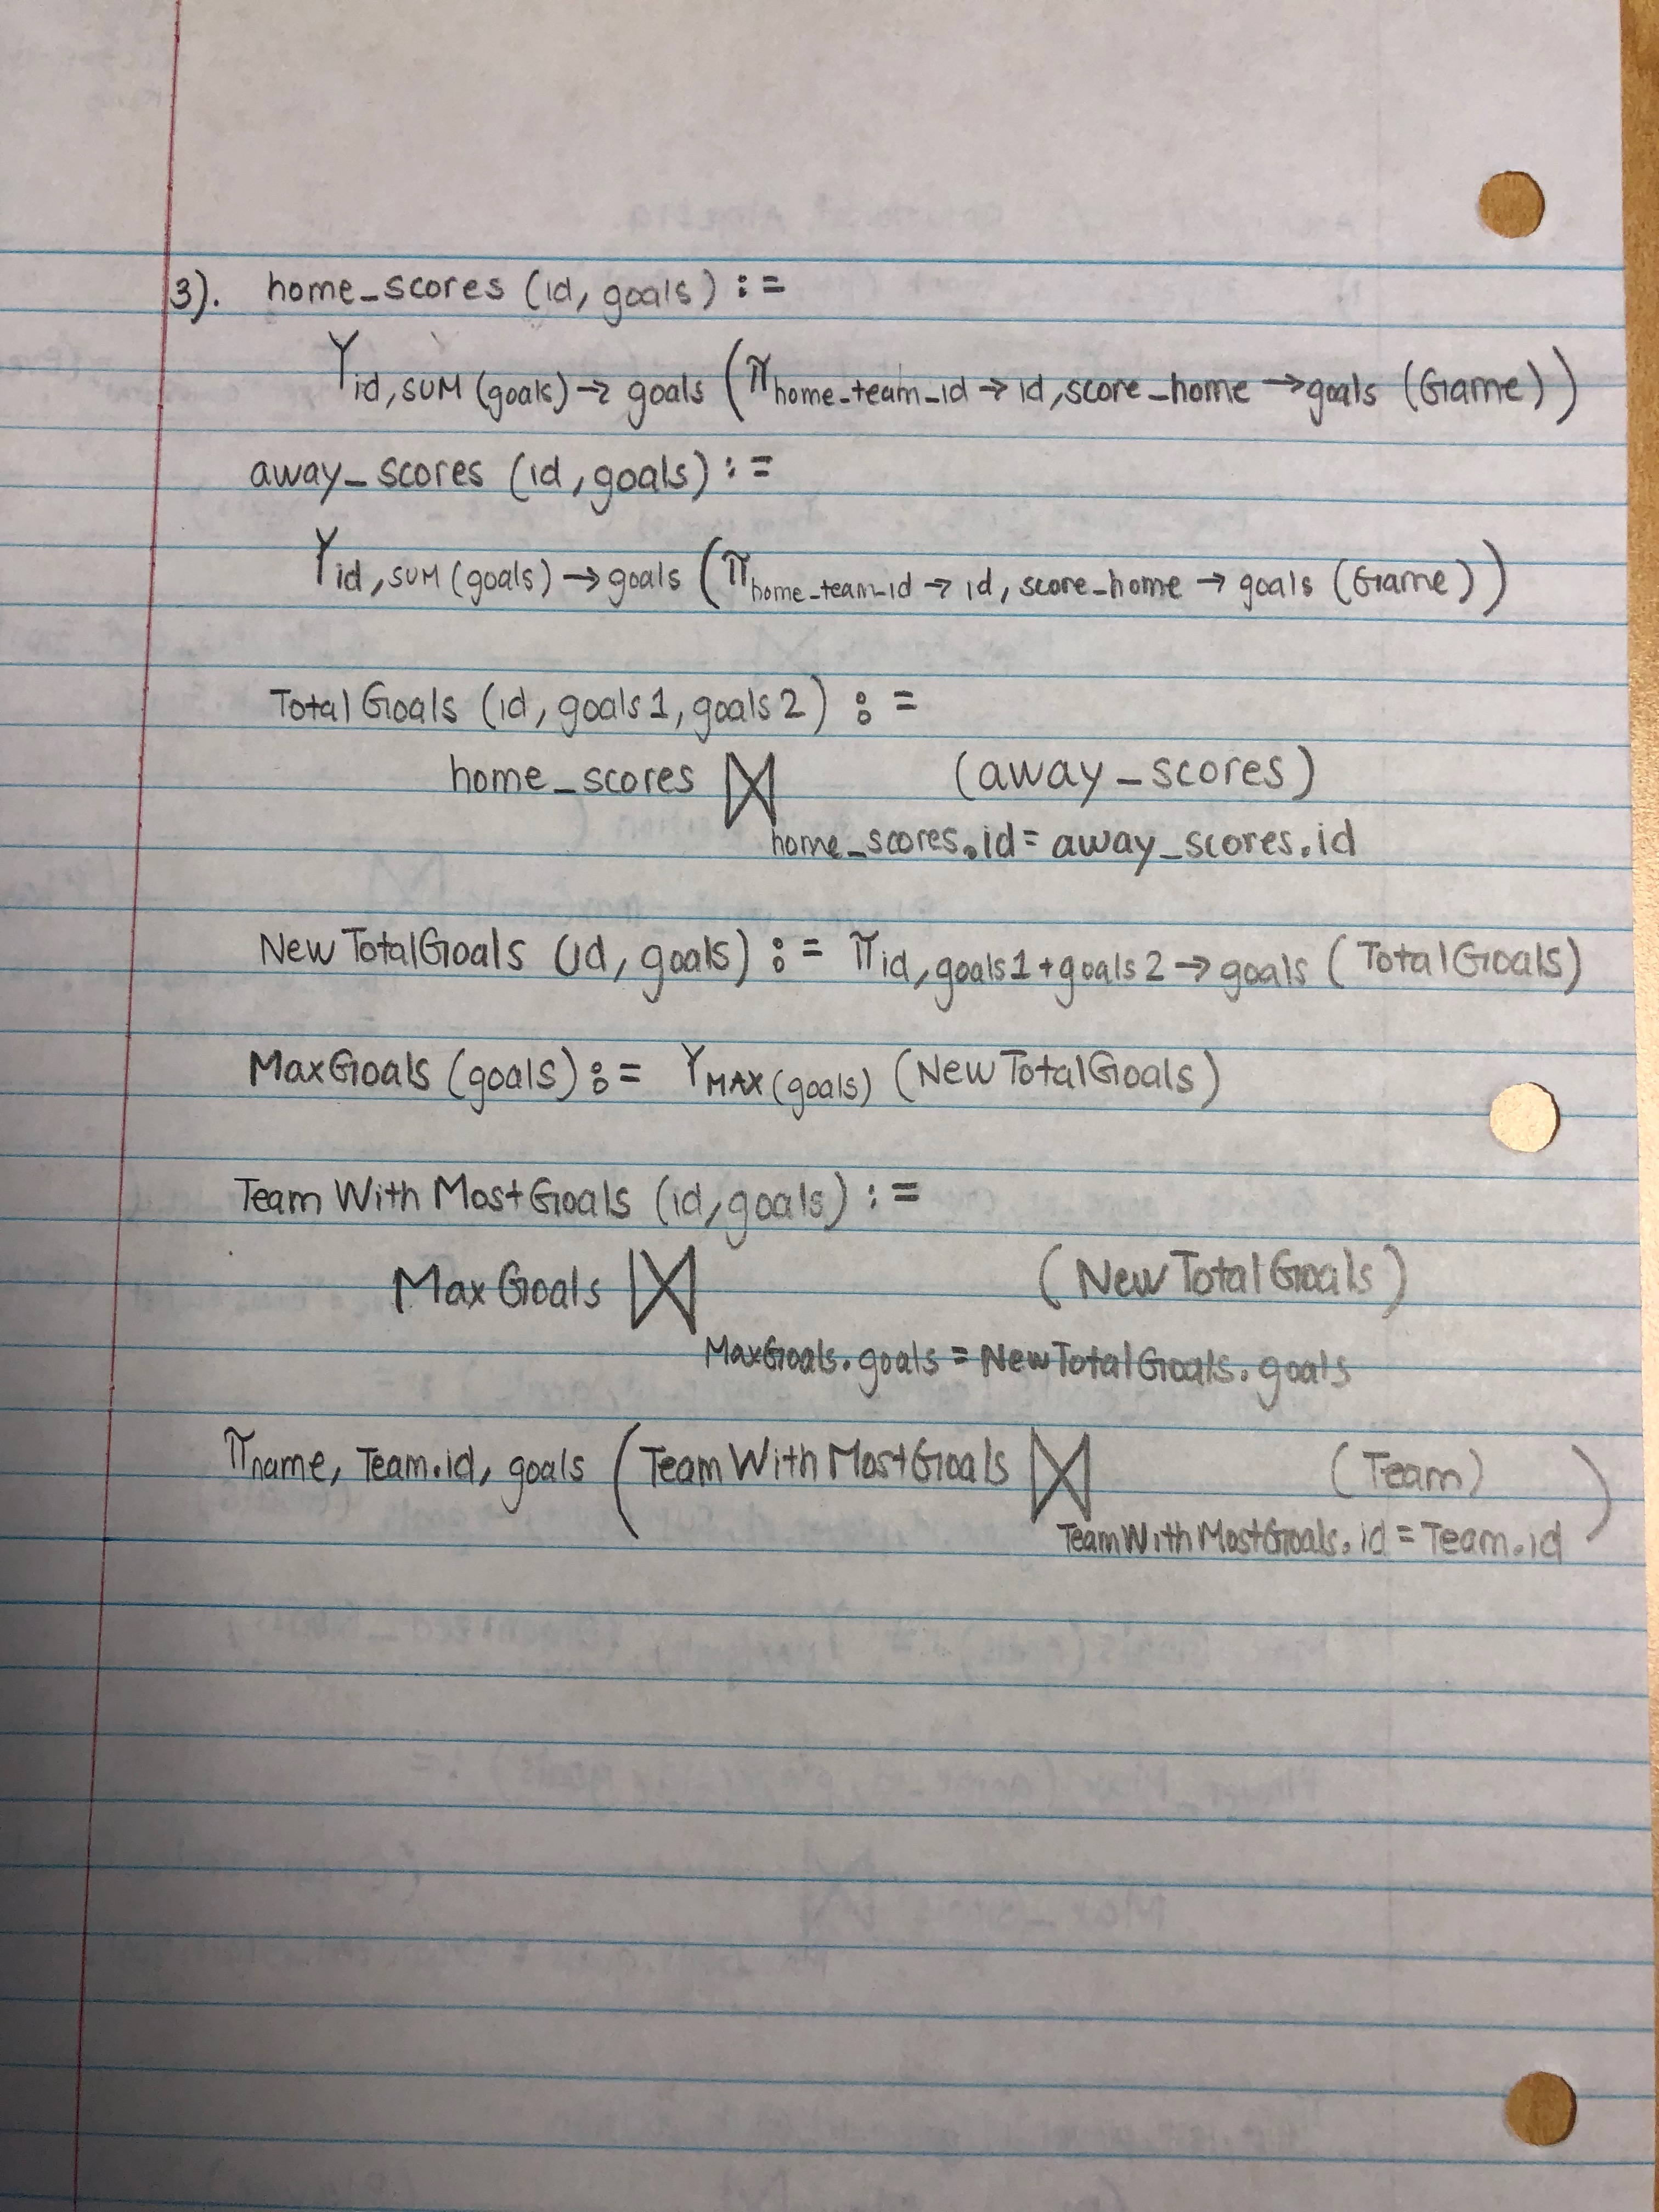 3). home_scores (id, goals) :=
γ id, SUM (goals) → goals (π home_team_id → id, score_home → goals (Game))
away_scores (id, goals) :=
γ id, SUM (goals) → goals (π home_team_id → id, score_home → goals (Game))
TotalGoals (id, goals1, goals2) :=
home_scores ⋈ (away_scores)
home_scores.id = away_scores.id
NewTotalGoals (id, goals) := π id, goals1 + goals2 → goals (TotalGoals)
MaxGoals (goals) := γ MAX (goals) (NewTotalGoals)
TeamWithMostGoals (id, goals) :=
MaxGoals ⋈ (NewTotalGoals)
MaxGoals.goals = NewTotalGoals.goals
π name, Team.id, goals (TeamWithMostGoals ⋈ (Team))
TeamWithMostGoals.id = Team.id